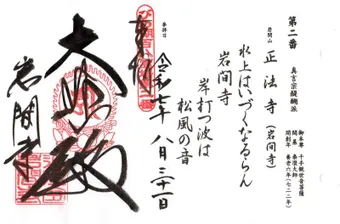 第二番
真言宗醍醐派
御本尊 千手観世音菩薩
開基 泰澄大師
開創年 養老六年(七二二)
岩間山 正法寺(岩間寺)
水上はいづくなるらん
岩間寺
岸打つ波は
松風の音
参拝日
令和七年 八月三十一日
奉拝
大悲殿
岩間寺